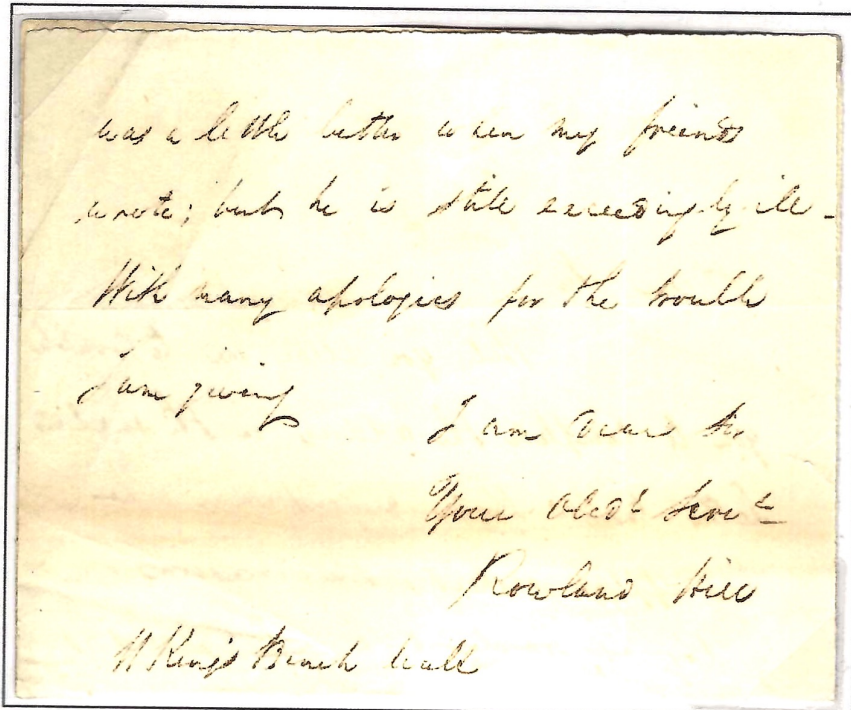 was a little better when my friends
wrote; but he is still exceedingly ill -
With many apologies for the trouble
I am giving
I am Dear Sir
Your obedt Servt
Rowland Hill
11 Kings Bench Walk